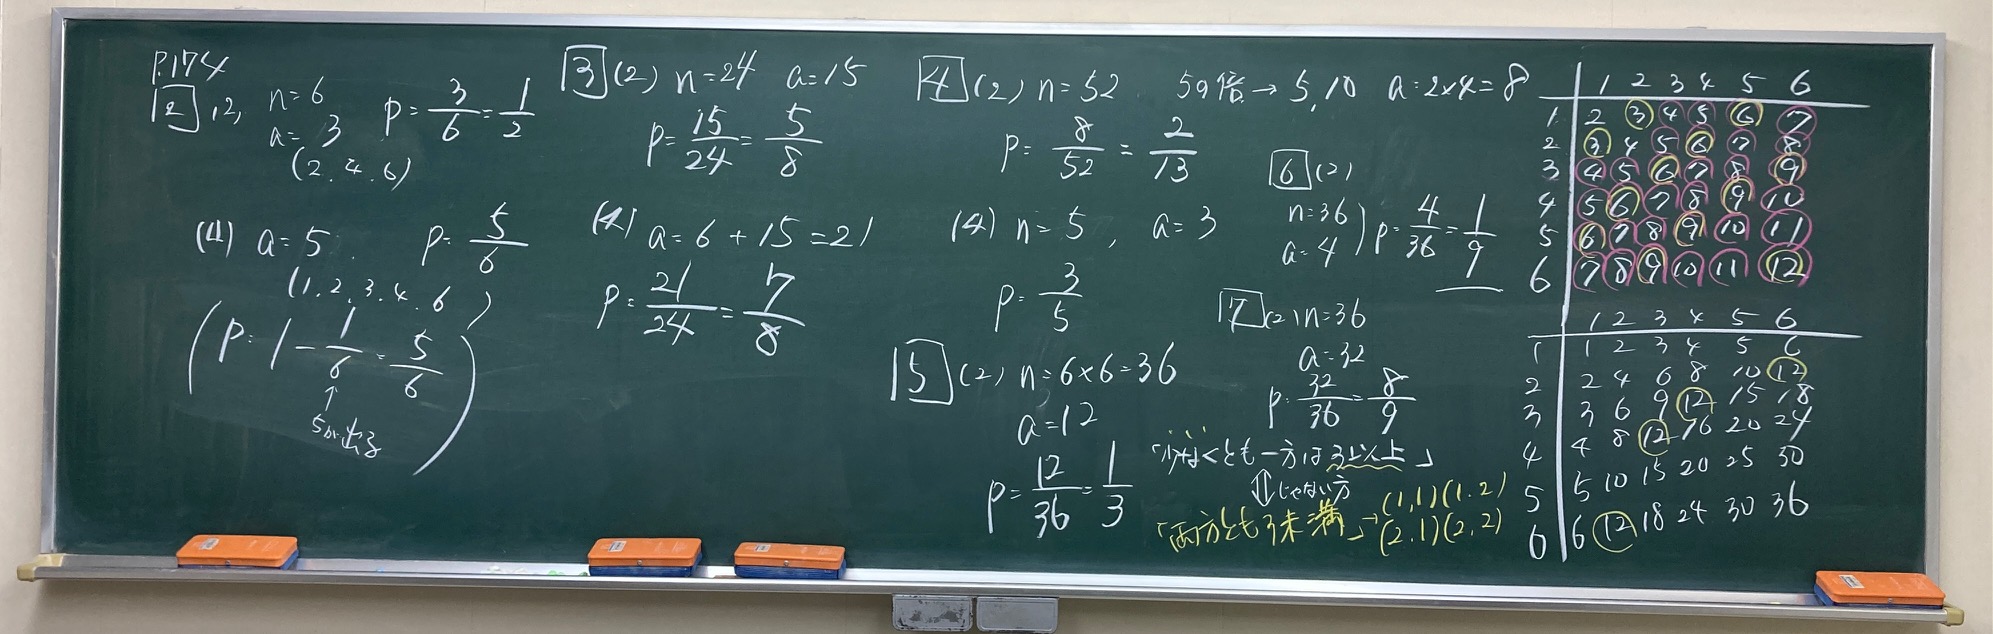 P.174
2 (2) n=6
a=3
(2.4.6)
p=3/6=1/2
(4) a=5 p=5/6
(1.2.3.4.6)
(p=1-1/6=5/6)
↑
5が出る
3 (2) n=24 a=15
p=15/24=5/8
(4) a=6+15=21
p=21/24=7/8
4 (2) n=52 5の倍→5,10 a=2×4=8
p=8/52=2/13
(4) n=5, a=3
p=3/5
5 (2) n=6×6=36
a=12
p=12/36=1/3
6 (2)
n=36
a=4
p=4/36=1/9
7 (2) n=36
a=32
p=32/36=8/9
「少なくとも一方は3以上」
⇕じゃない方
「両方とも3未満」→(1,1)(1.2)
(2.1)(2,2)
1 2 3 4 5 6
1 2 3 4 5 6 7
2 3 4 5 6 7 8
3 4 5 6 7 8 9
4 5 6 7 8 9 10
5 6 7 8 9 10 11
6 7 8 9 10 11 12
1 2 3 4 5 6
1 1 2 3 4 5 6
2 2 4 6 8 10 12
3 3 6 9 12 15 18
4 4 8 12 16 20 24
5 5 10 15 20 25 30
6 6 12 18 24 30 36